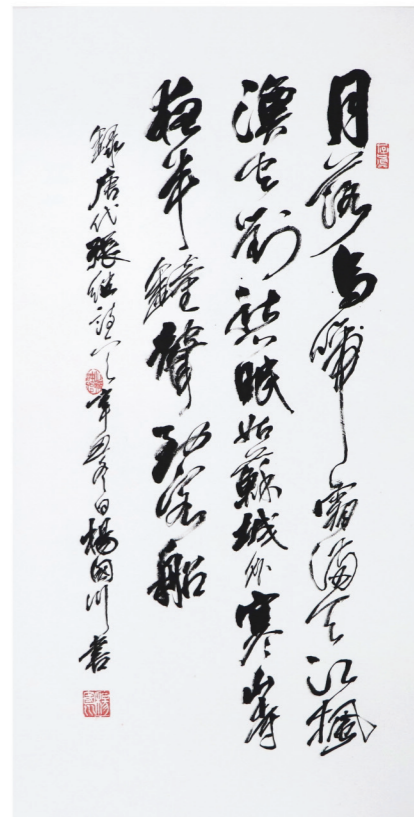 月落烏啼霜滿天江楓
漁火對愁眠姑蘇城外寒山寺
夜半鐘聲到客船
錄唐代張繼詩 辛丑冬日楊國川書